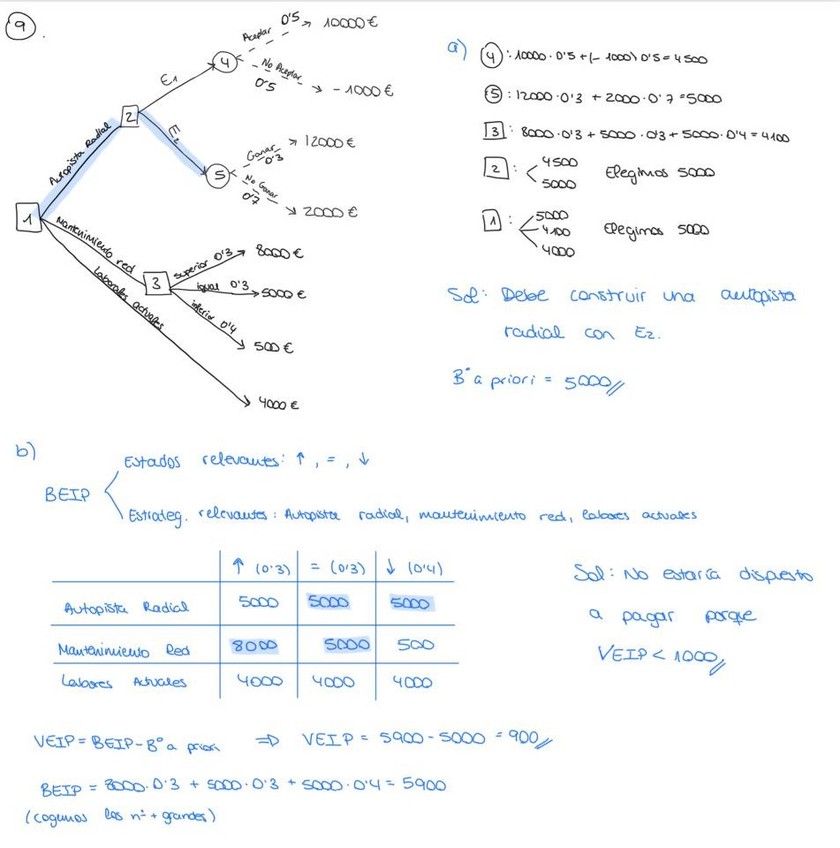 9
Aceptar 0'5 10000 €
4
E1
No Aceptar
0'5
- 1000 €
2
Autopista Radial
E2
Ganar
0'3
12000 €
5
No Ganar
0'7
2000 €
1
Mantenimiento red
3
superior 0'3 8000 €
igual 0'3 5000 €
inferior 0'4
500 €
laborales actuales
4000 €
a)
4 : 10000 · 0'5 + (- 1000) 0'5 = 4500
5 : 12000 · 0'3 + 2000 · 0'7 = 5000
3 : 8000 · 0'3 + 5000 · 0'3 + 5000 · 0'4 = 4100
2 : 4500
5000
Elegimos 5000
1 : 5000
4100
4000
Elegimos 5000
Sol: Debe construir una autopista
radial con E2.
Bº a priori = 5000
b)
BEIP
Estados relevantes: ↑ , = , ↓
Estrateg. relevantes: Autopista radial, mantenimiento red, labores actuales
↑ (0'3) = (0'3) ↓ (0'4)
Autopista Radial 5000 5000 5000
Mantenimiento Red 8000 5000 500
Labores Actuales 4000 4000 4000
Sol: No estaría dispesto
a pagar porque
VEIP < 1000
VEIP = BEIP - Bº a priori ⇒ VEIP = 5900 - 5000 = 900
BEIP = 8000 · 0'3 + 5000 · 0'3 + 5000 · 0'4 = 5900
(cogemos los nº + grandes)